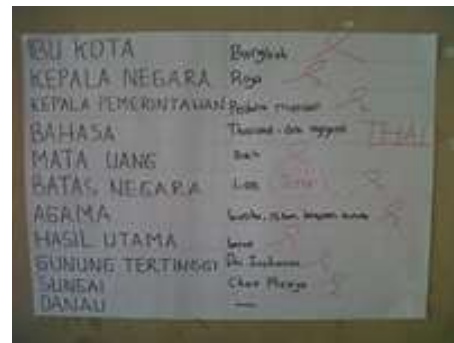 IBU KOTA Bangkok
KEPALA NEGARA Raja
KEPALA PEMERINTAHAN Perdana menteri
BAHASA Thailand THAI
MATA UANG Bath
BATAS NEGARA Laos
AGAMA
HASIL UTAMA beras
GUNUNG TERTINGGI Doi Inthanon
SUNGAI Chao Phraya
DANAU —